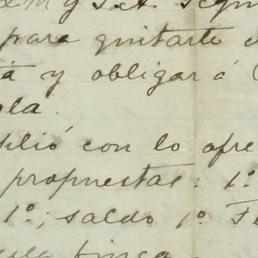 y S.A. segui
para quitarte
á y obligar á
ola.
plió con lo ofre
propuestas: 1º
1º; saldo 1º Fe
finca